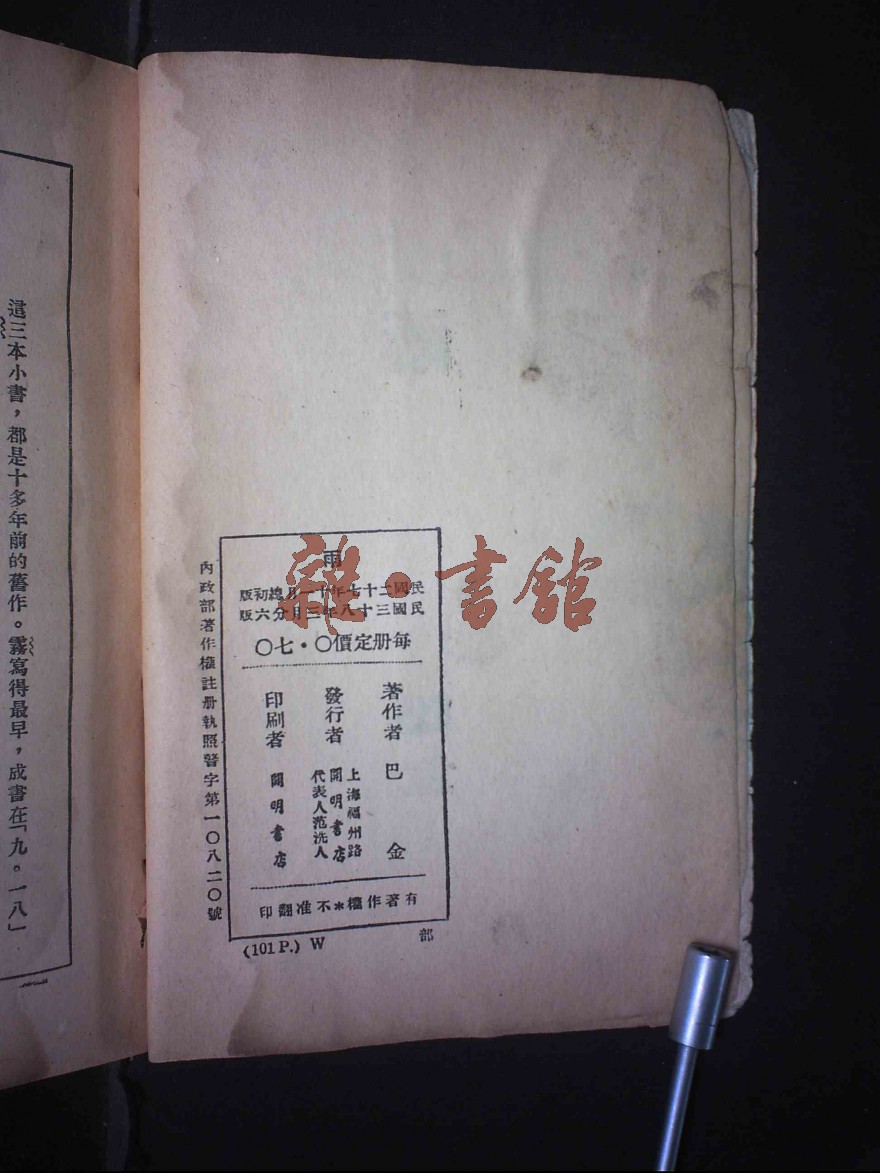 這三本小書，都是十多年前的舊作。霧寫得最早，成書在「九。一八」
雜·書館
雨
民國二十七年十一月總初版
民國三十八年三月分六版
每册定價〇·七〇
著作者 巴 金
發行者 上海福州路
開明書店
代表人范洗人
印刷者 開明書店
有著作權＊不准翻印
內政部著作權註册執照警字第一〇八二〇號
(101 P.) W
部